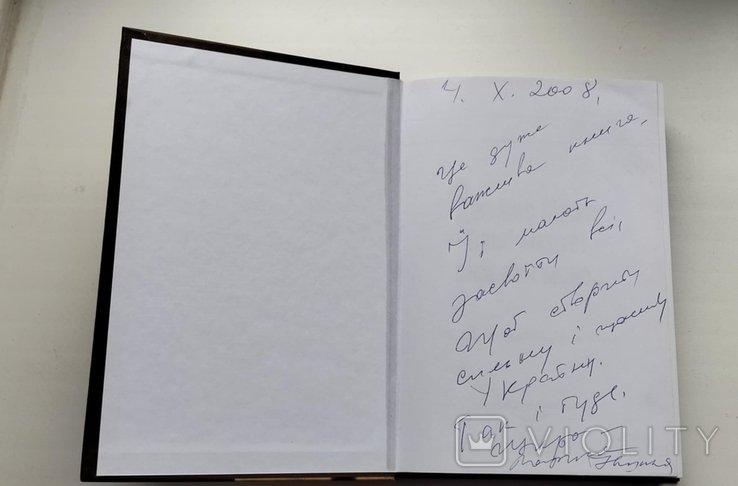 4. X. 2008,
Це дуже
важлива книга,
Її мають
засвоїти всі,
щоб створити
сильну і щасливу
Україну.
Так і буде.
Щиро
VIOLITY